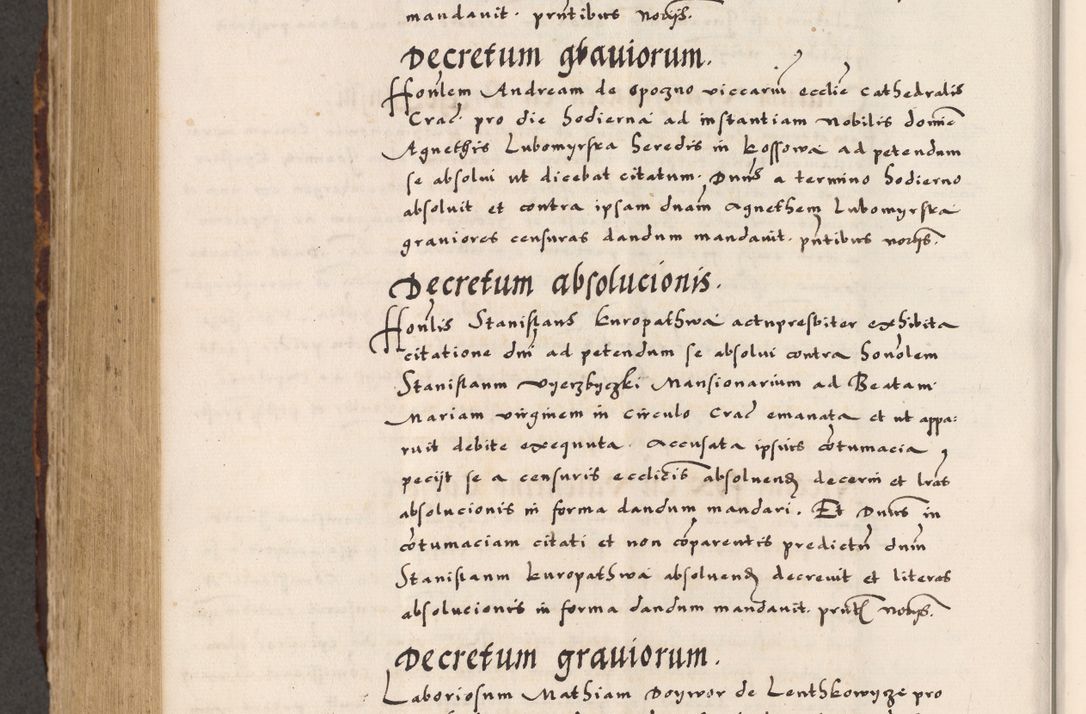 mandauit. pntibus nobis.
Decretum grauiorum.
Honlem Andream de opozno viccarium ecclie cathedralis
Crac pro die hodierna ad instantiam Nobilis domine
Agnethis Lubomyrska heredis in kossowa ad petendum
se absolui ut dicebat citatum. Dnus a termino hodierno
absoluit et contra ipsam dnam Agnethem Lubomyrska
grauiores censuras dandum mandauit. pntibus nobis.
Decretum absolucionis.
Honlis Stanislaus kuropathwa actupresbiter exhibita
citatione dni ad petendum se absolui contra honolem
Stanislaum vyerzbyczki Mansionarium ad Beatam
Mariam virginem in circulo Crac emanata et ut appa:
ruit debite exequuta. Accusata ipsius cotumacia,
pecijt se a censuris ecclicis absoluend decerni et lras
absolucionis in forma dandum mandari. Et Dnus in
cotumaciam citati et non coparentis predictu dnm
Stanislaum kuropathwa absoluend decreuit et literas
absolucionis in forma dandum mandauit. pnt nobis.
Decretum grauiorum.
Laboriosum Mathiam Doywor de Lenthkowycze pro